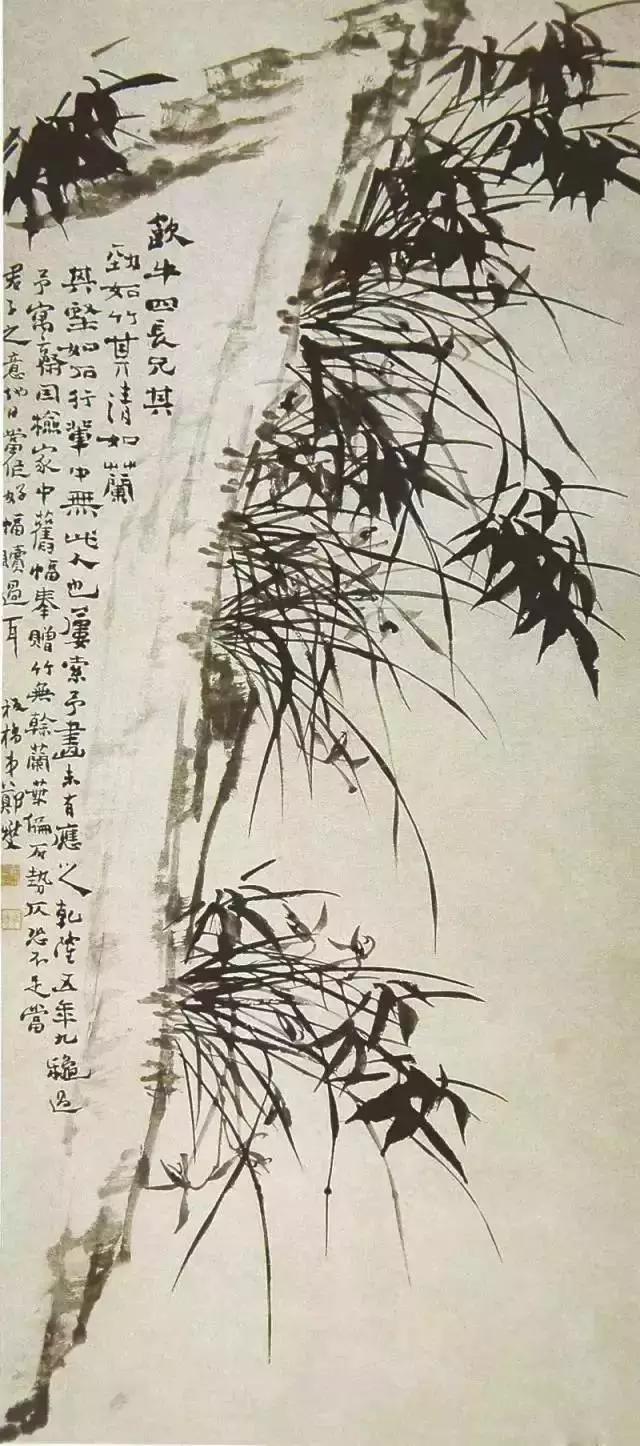 歗牛四長兄其
勁如竹其清如蘭
其堅如石行輩中無此人也屢索予畫未有應之乾隆五年九龝過
予寓齋因檢家中舊幅奉贈竹無榦蘭葉偏石勢仄恐不足當
君子之意他日當作好幅贖過耳 板橋弟鄭燮